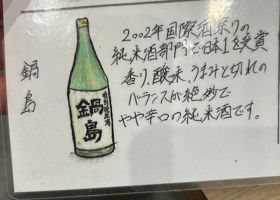 鍋島
2002年国際酒祭りの
純米酒部門で日本1を受賞
香り、酸味、うまみと切れの
バランスが絶妙で
やや辛口の純米酒です。
鍋島